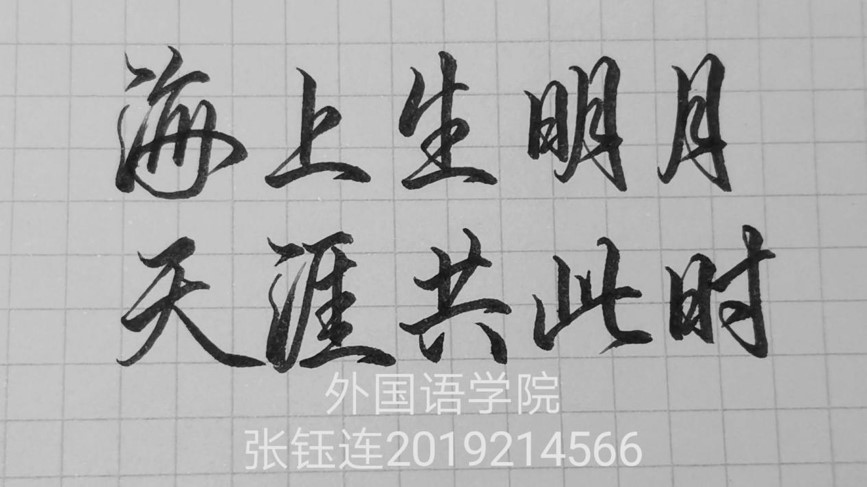 海上生明月
天涯共此时
外国语学院
张钰连2019214566